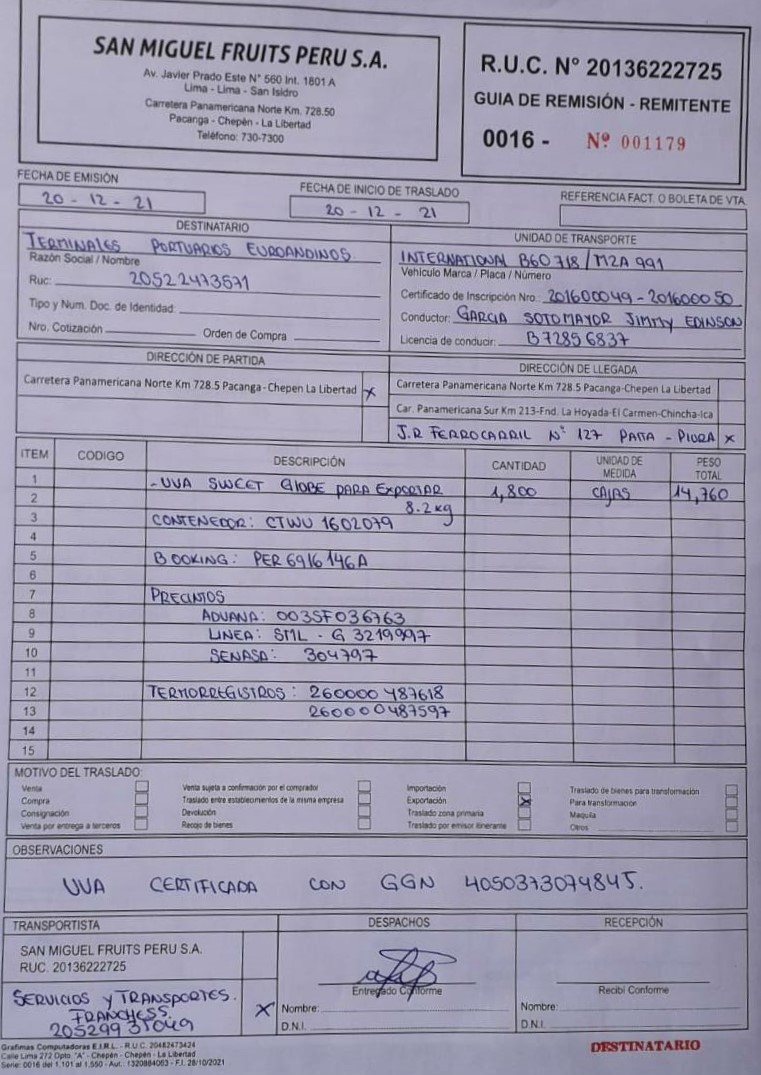 SAN MIGUEL FRUITS PERU S.A.
Av. Javier Prado Este N° 560 Int. 1801 A
Lima - Lima - San Isidro
Carretera Panamericana Norte Km. 728.50
Pacanga - Chepén - La Libertad
Teléfono: 730-7300
R.U.C. N° 20136222725
GUIA DE REMISIÓN - REMITENTE
0016 - Nº 001179
FECHA DE EMISIÓN
20 - 12 - 21
FECHA DE INICIO DE TRASLADO
20 - 12 - 21
REFERENCIA FACT. O BOLETA DE VTA.
DESTINATARIO
TERMINALES PORTUARIOS EUROANDINOS
Razón Social / Nombre
Ruc: 20522473571
Tipo y Num. Doc. de Identidad:
Nro. Cotización Orden de Compra
UNIDAD DE TRANSPORTE
INTERNATIONAL B60 718 / M2A 991
Vehículo Marca / Placa / Número
Certificado de Inscripción Nro.: 201600049 - 201600050
Conductor: GARCIA SOTOMAYOR JIMMY EDINSON
Licencia de conducir: B72856837
DIRECCIÓN DE PARTIDA
Carretera Panamericana Norte Km 728.5 Pacanga-Chepen La Libertad X
DIRECCIÓN DE LLEGADA
Carretera Panamericana Norte Km 728.5 Pacanga-Chepen La Libertad
Car. Panamericana Sur Km 213-Fnd. La Hoyada-El Carmen-Chincha-Ica
J.R FERROCARRIL N° 127 PAITA - PIURA X
ITEM CODIGO DESCRIPCIÓN CANTIDAD UNIDAD DE MEDIDA PESO TOTAL
1
2 - UVA SWEET GLOBE PARA EXPORTAR 1,800 CAJAS 14,760
8.2 kg
3 CONTENEDOR: CTWU 1602079
4
5 BOOKING: PER6916146A
6
7 PRECINTOS
8 ADUANA: 003SF036763
9 LINEA: SML - G 3219997
10 SENASA: 304797
11
12 TERMORREGISTROS: 260000487618
13 260000487597
14
15
MOTIVO DEL TRASLADO:
Venta
Compra
Consignación
Venta por entrega a terceros
Venta sujeta a confirmación por el comprador
Traslado entre establecimientos de la misma empresa
Devolución
Recojo de bienes
Importación
Exportación X
Traslado zona primaria
Traslado por emisor itinerante
Traslado de bienes para transformación
Para transformación
Maquila
Otros
OBSERVACIONES
UVA CERTIFICADA CON GGN 4050373079845.
TRANSPORTISTA
SAN MIGUEL FRUITS PERU S.A.
RUC. 20136222725
SERVICIOS Y TRANSPORTES.
FRANCHESS X
DESPACHOS
Entregado Conforme
Nombre:
D.N.I.
RECEPCIÓN
Recibí Conforme
Nombre:
D.N.I.
Grafimas Computadoras E.I.R.L. - R.U.C. 20482473424
Calle Lima 272 Dpto. "A" - Chepén - Chepén - La Libertad
Serie: 0016 del 1,101 al 1,550 - Aut.: 1320884063 - F.I. 28/10/2021
DESTINATARIO